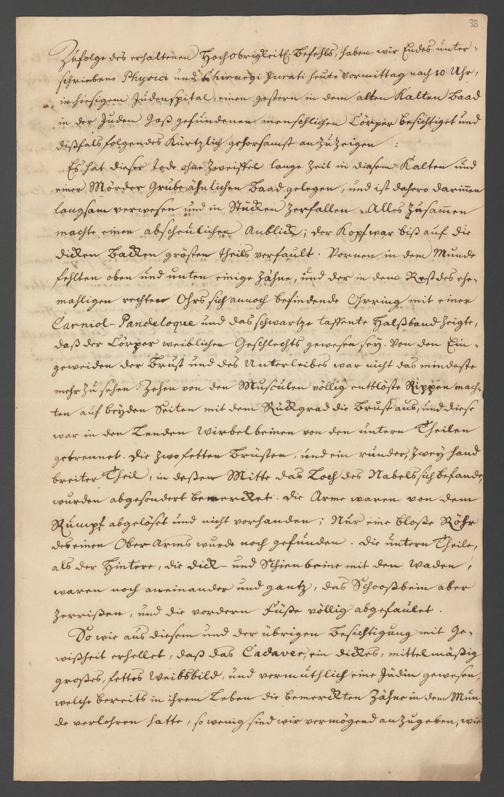 38
Zufolge des erhaltenen Hochobrigkeitl: Befehls, haben wir Endes unter-
schriebene Physici und Chirurgi Jurati heute vormittag nach 10 Uhr,
in hiesigem Judenspital, einen gestern in dem alten Kalten Baad
in der Juden Gaß gefundenen menschlichen Cörper besichtiget und
dißfals folgendes Kürtzlich gehorsamst anzuzeigen:
Es hat dieser Tode ohne Zweiffel lange Zeit in diesem Kalten und
einer Mörder Grube ähnlichen Baad gelegen, und ist dahero darinnen
langsam verwesen und in Stücken zerfallen. Alles zusammen
machte einen abscheulichen Anblick; der Kopf war biß auf die
dicken Backen grösten theils verfault. Vornen in dem Munde
fehlten oben und unten einige Zähne, und der in dem Rest des ehe-
mahligen rechten Ohrs sich annoch befindende Ohrring mit einer
Carniol-Pandeloque und das schwartze taffente Halßband zeigte,
daß der Cörper weiblichen Geschlechts gewesen sey. Von den Ein-
geweiden der Brust und des Unterleibes war nicht das mindeste
mehr zu sehen. Zehen von den Musculen völlig entblöste Rippen mach-
ten auf beyden Seiten mit dem Rückgrad die Brust aus, und diese
war in den Lenden Wirbelbeinen von den untern Theilen
getrennet. Die zwo fetten Brüsten, und ein runder, zwey hand
breiter Theil, in deßen Mitte das Loch des Nabels sich befande,
wurden abgesondert bemercket. Die Arme waren von dem
Rumpf abgelöset und nicht vorhanden; Nur eine bloße Röhr
des einen Ober Arms wurde noch gefunden. Die untern Theile,
als der Hintere, die dick und Schienbeine mit den Waden,
waren noch aneinander und gantz, das Schooßbein aber
zerrißen, und die vordern Füße völlig abgefaulet.
So wie aus diesem und der übrigen Besichtigung mit Ge-
wißheit erhellet, daß das Cadaver, ein dickes, mittelmäßig
großes, fettes Weibsbild, und vermuthlich eine Jüdin gewesen,
welche bereits in ihrem Leben die bemerckten Zähne in dem Mun-
de verlohren hatte, so wenig sind wir vermögend anzugeben, wie